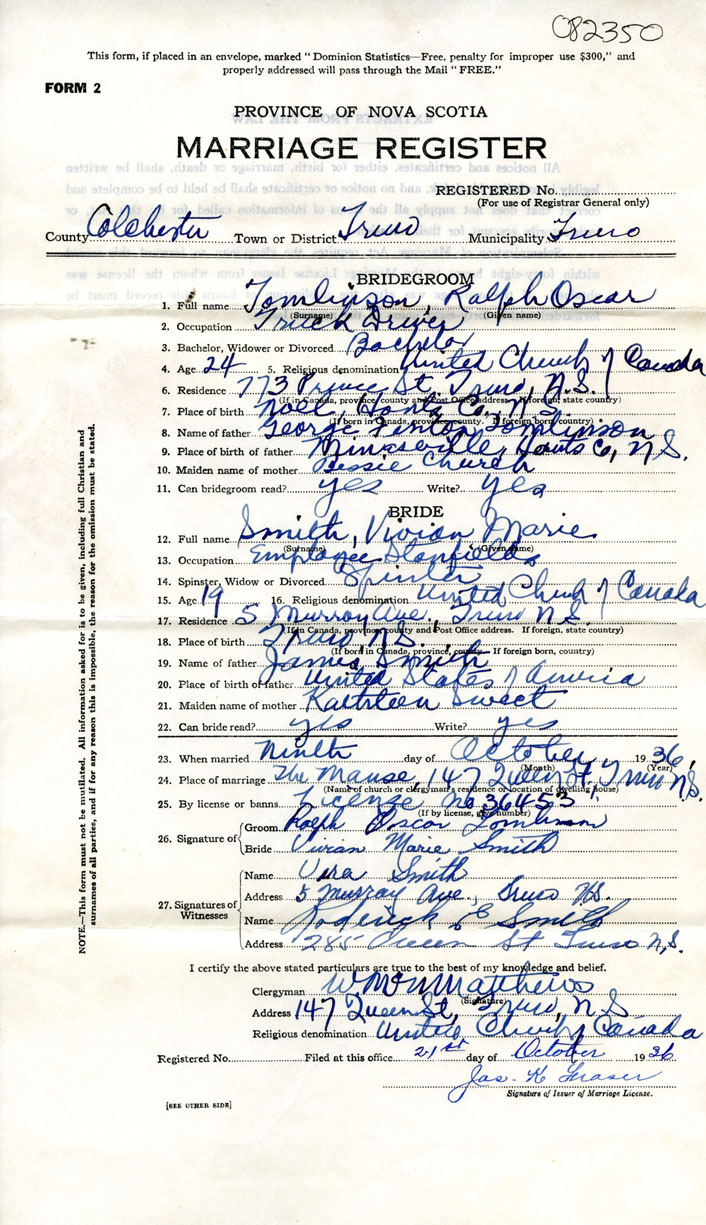 082350
This form, if placed in an envelope, marked "Dominion Statistics—Free, penalty for improper use $300," and
properly addressed will pass through the Mail "FREE."
FORM 2
PROVINCE OF NOVA SCOTIA
MARRIAGE REGISTER
REGISTERED No.
(For use of Registrar General only)
County Colchester Town or District Truro Municipality Truro
BRIDEGROOM
1. Full name Tomlinson, Ralph Oscar
(Surname) (Given name)
2. Occupation Truck Driver
3. Bachelor, Widower or Divorced Bachelor
4. Age 24 5. Religious denomination United Church of Canada
6. Residence 773 Prince St, Truro, N.S.
(If in Canada, province, county and Post Office address. If foreign, state country)
7. Place of birth Noel, Hants Co., N.S.
(If born in Canada, province, county. If foreign born, country)
8. Name of father George Tomlinson
9. Place of father Minasville, Hants Co, N.S.
10. Maiden name of mother Bessie Church
11. Can bridegroom read? yes Write? yes
BRIDE
12. Full name Smith, Vivian Marie
(Surname) (Given name)
13. Occupation Employee Stanfields
14. Spinster, Widow or Divorced Spinster
15. Age 19 16. Religious denomination United Church of Canada
17. Residence 5 Murray Ave., Truro N.S.
(If in Canada, province, county and Post Office address. If foreign, state country)
18. Place of birth Truro, N.S.
(If born in Canada, province, county. If foreign born, country)
19. Name of father James Smith
20. Place of birth of father United States of America
21. Maiden name of mother Kathleen Sweet
22. Can bride read? yes Write? yes
23. When married Ninth day of October 1936,
(Month) (Year)
24. Place of marriage The Manse, 147 Queen St. Truro N.S.
(Name of church or clergyman's residence or location of dwelling house)
25. By license or banns License No. 36453
(If by license, give number)
26. Signature of
Groom Ralph Oscar Tomlinson
Bride Vivian Marie Smith
27. Signatures of Witnesses
Name Vera Smith
Address 5 Murray Ave., Truro N.S.
Name Roderick E Smith
Address 285 Queen St Truro N.S.
I certify the above stated particulars are true to the best of my knowledge and belief.
Clergyman Matthews
(Signature)
Address 147 Queen St, Truro, N S
Religious denomination United Church of Canada
Registered No. Filed at this office 21st day of October 1936
Jas. K Fraser
Signature of Issuer of Marriage License.
[SEE OTHER SIDE]
NOTE.—This form must not be mutilated. All information asked for is to be given, including full Christian and
surnames of all parties, and if for any reason this is impossible, the reason for the omission must be stated.